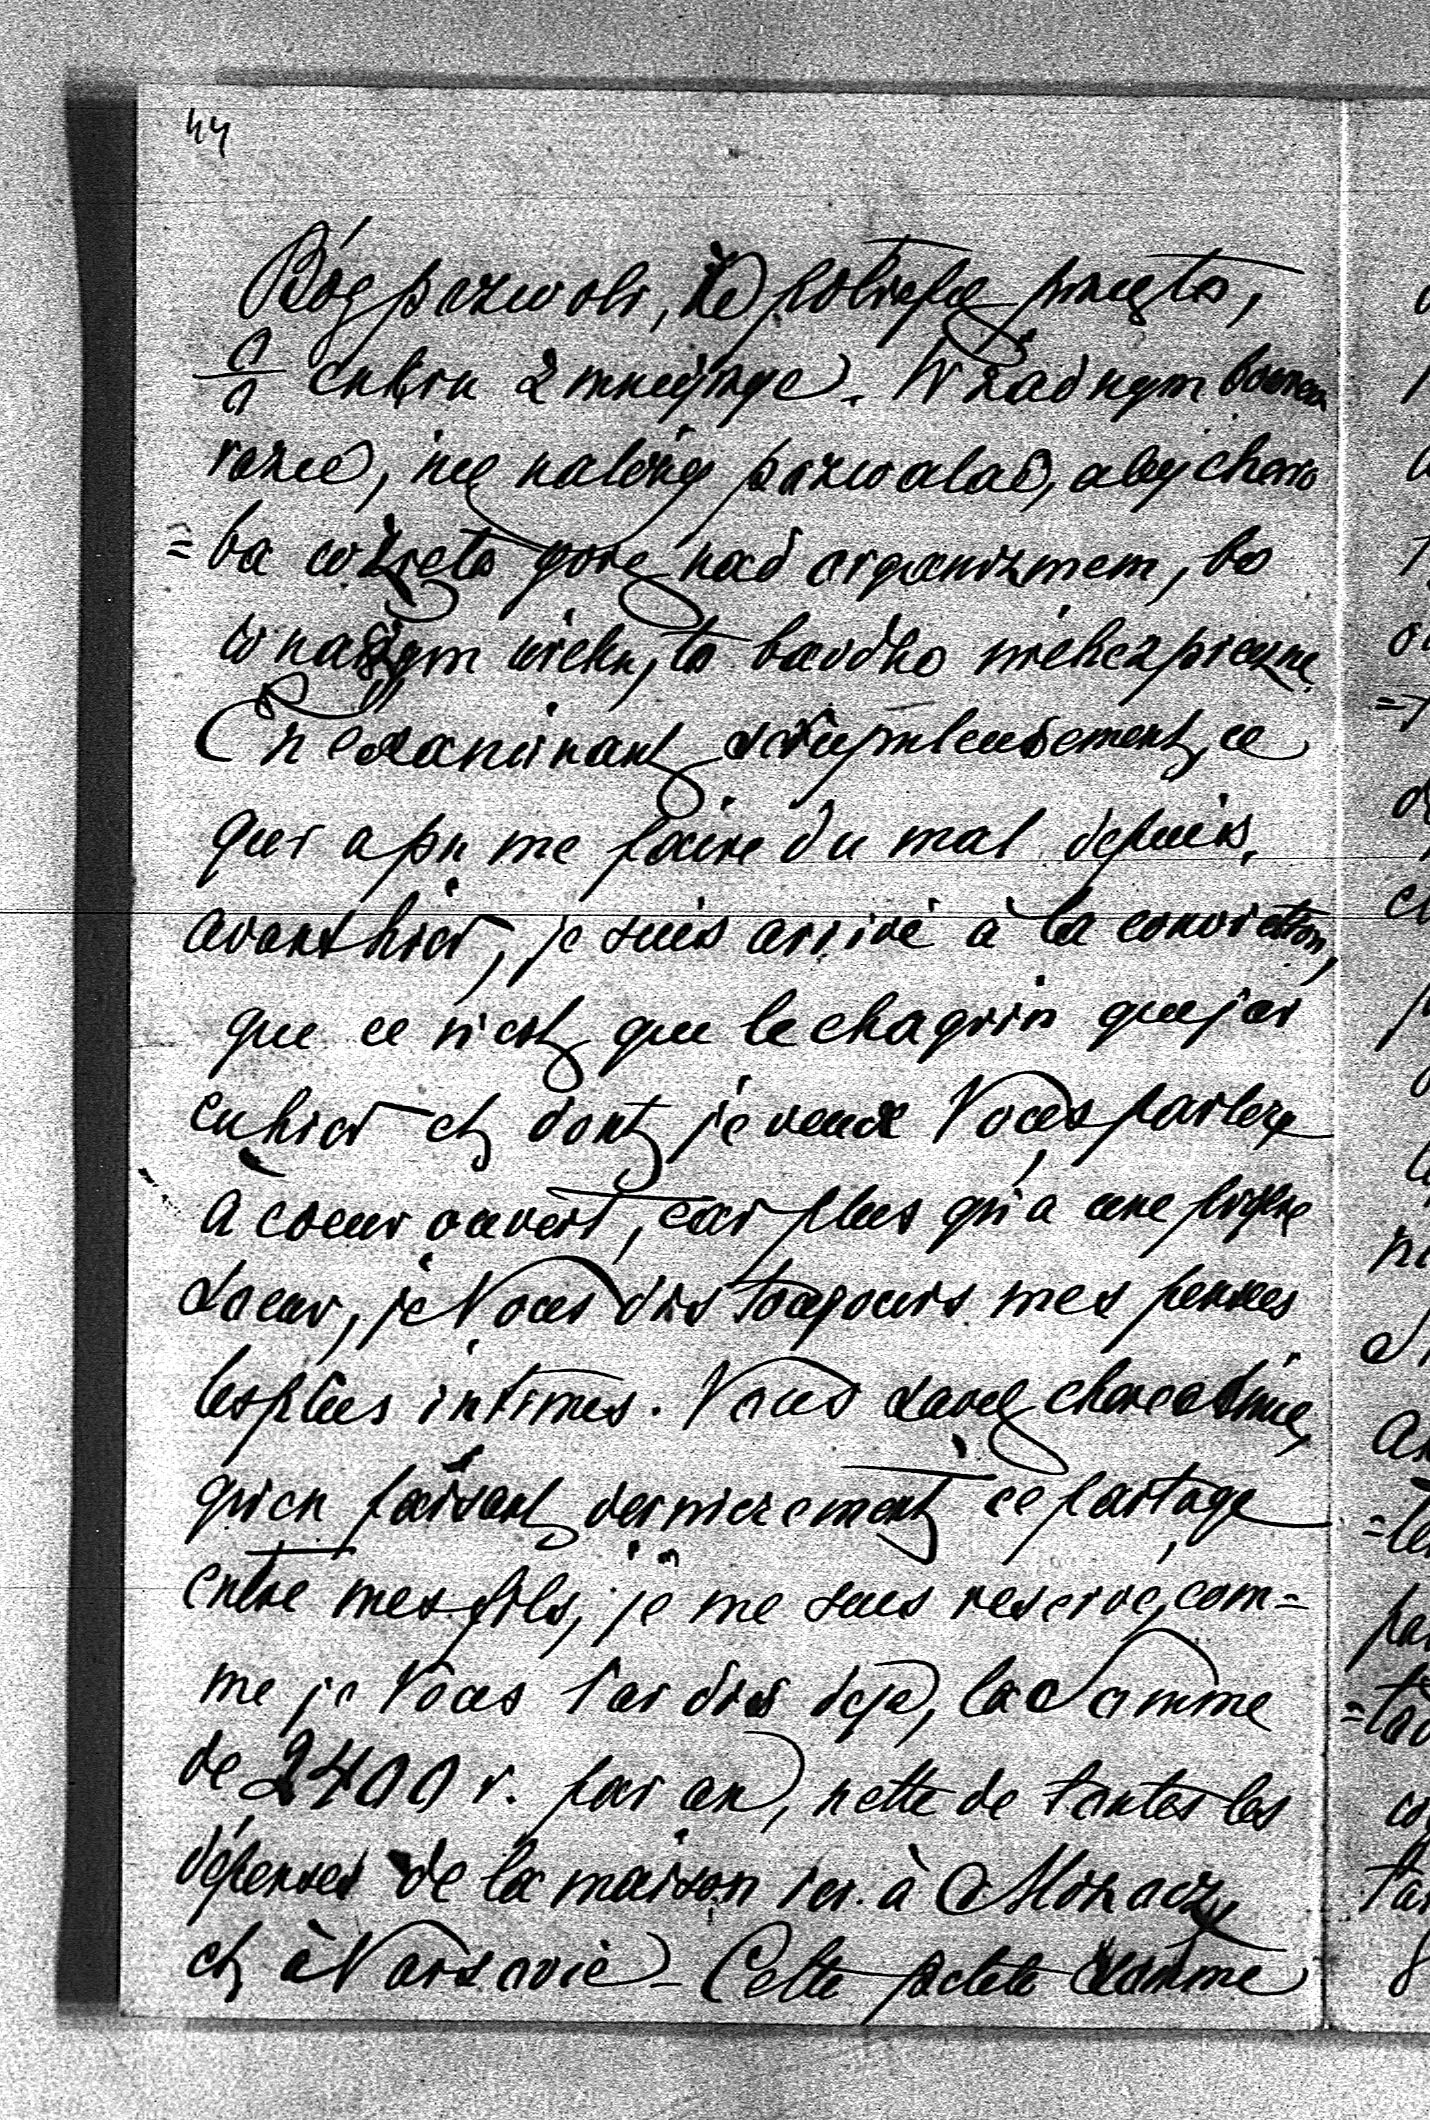 44
Bóg pozwoli, że potrafię przez to,
% cukru zmniejszyć. W żadnym bowiem
razie, nie należy pozwalać, aby choro
= ba wzięła górę nad organizmem, bo
w naszym wieku, to bardzo niebezpieczne
En examinant scrupuleusement, ce
qui a pu me faire du mal depuis,
avant hier, je suis arrivé à la conviction,
que ce n'est que le chagrin que j'ai
eu hier et dont je veux Vous parler
à coeur ouvert, car plus qu'à une
soeur, je Vous dis toujours mes pensees
les plus intimes. Vous savez chere
qu'en faisant dernierement ce partage
entre mes fils, je me suis reservé, com=
me je Vous l'ai dis deja, la Somme
de 2400 r. par an, nette de toutes les
dépenses de la maison ici à
et à Varsovie - Cette petite somme